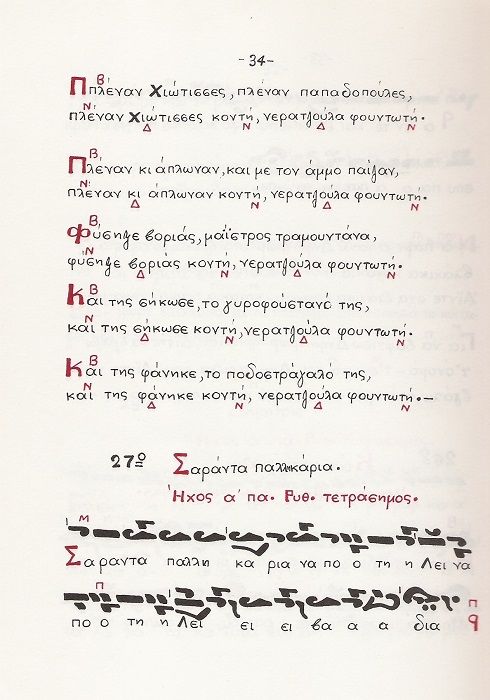 -34-
Β
Ππλέναν Χιώτισσες, πλέναν παπαδοπούλες,
Ν
πλέναν Χιώτισσες κοντή, νερατζούλα φουντωτή.
Δ Ν Δ Ν
Β
Πλέναν κι άπλωναν, και με τον άμμο παίζαν,
Ν
πλέναν κι άπλωναν κοντή, νερατζούλα φουντωτή.
Δ Ν Δ Ν
Β
Φύσηξε βοριάς, μαΐστρος τραμουντάνα,
Ν
φύσηξε βοριάς κοντή, νερατζούλα φουντωτή.
Δ Ν Δ Ν
Β
Και της σήκωσε, το γυροφούστανό της,
Ν
και της σήκωσε κοντή, νερατζούλα φουντωτή.
Δ Ν Δ Ν
Β
Και της φάνηκε, το ποδοστράγαλό της,
Ν
και της φάνηκε κοντή, νερατζούλα φουντωτή.-
Δ Ν Δ Ν
27ο Σαράντα παλληκάρια.
Ήχος α' πα. Ρυθ. τετράσημος.
Μ
Σαραντα παλλη κα ρια να πο ο τη η Λει να
Π
πο ο τη η Λει ει ει βα α α δια
Π
q